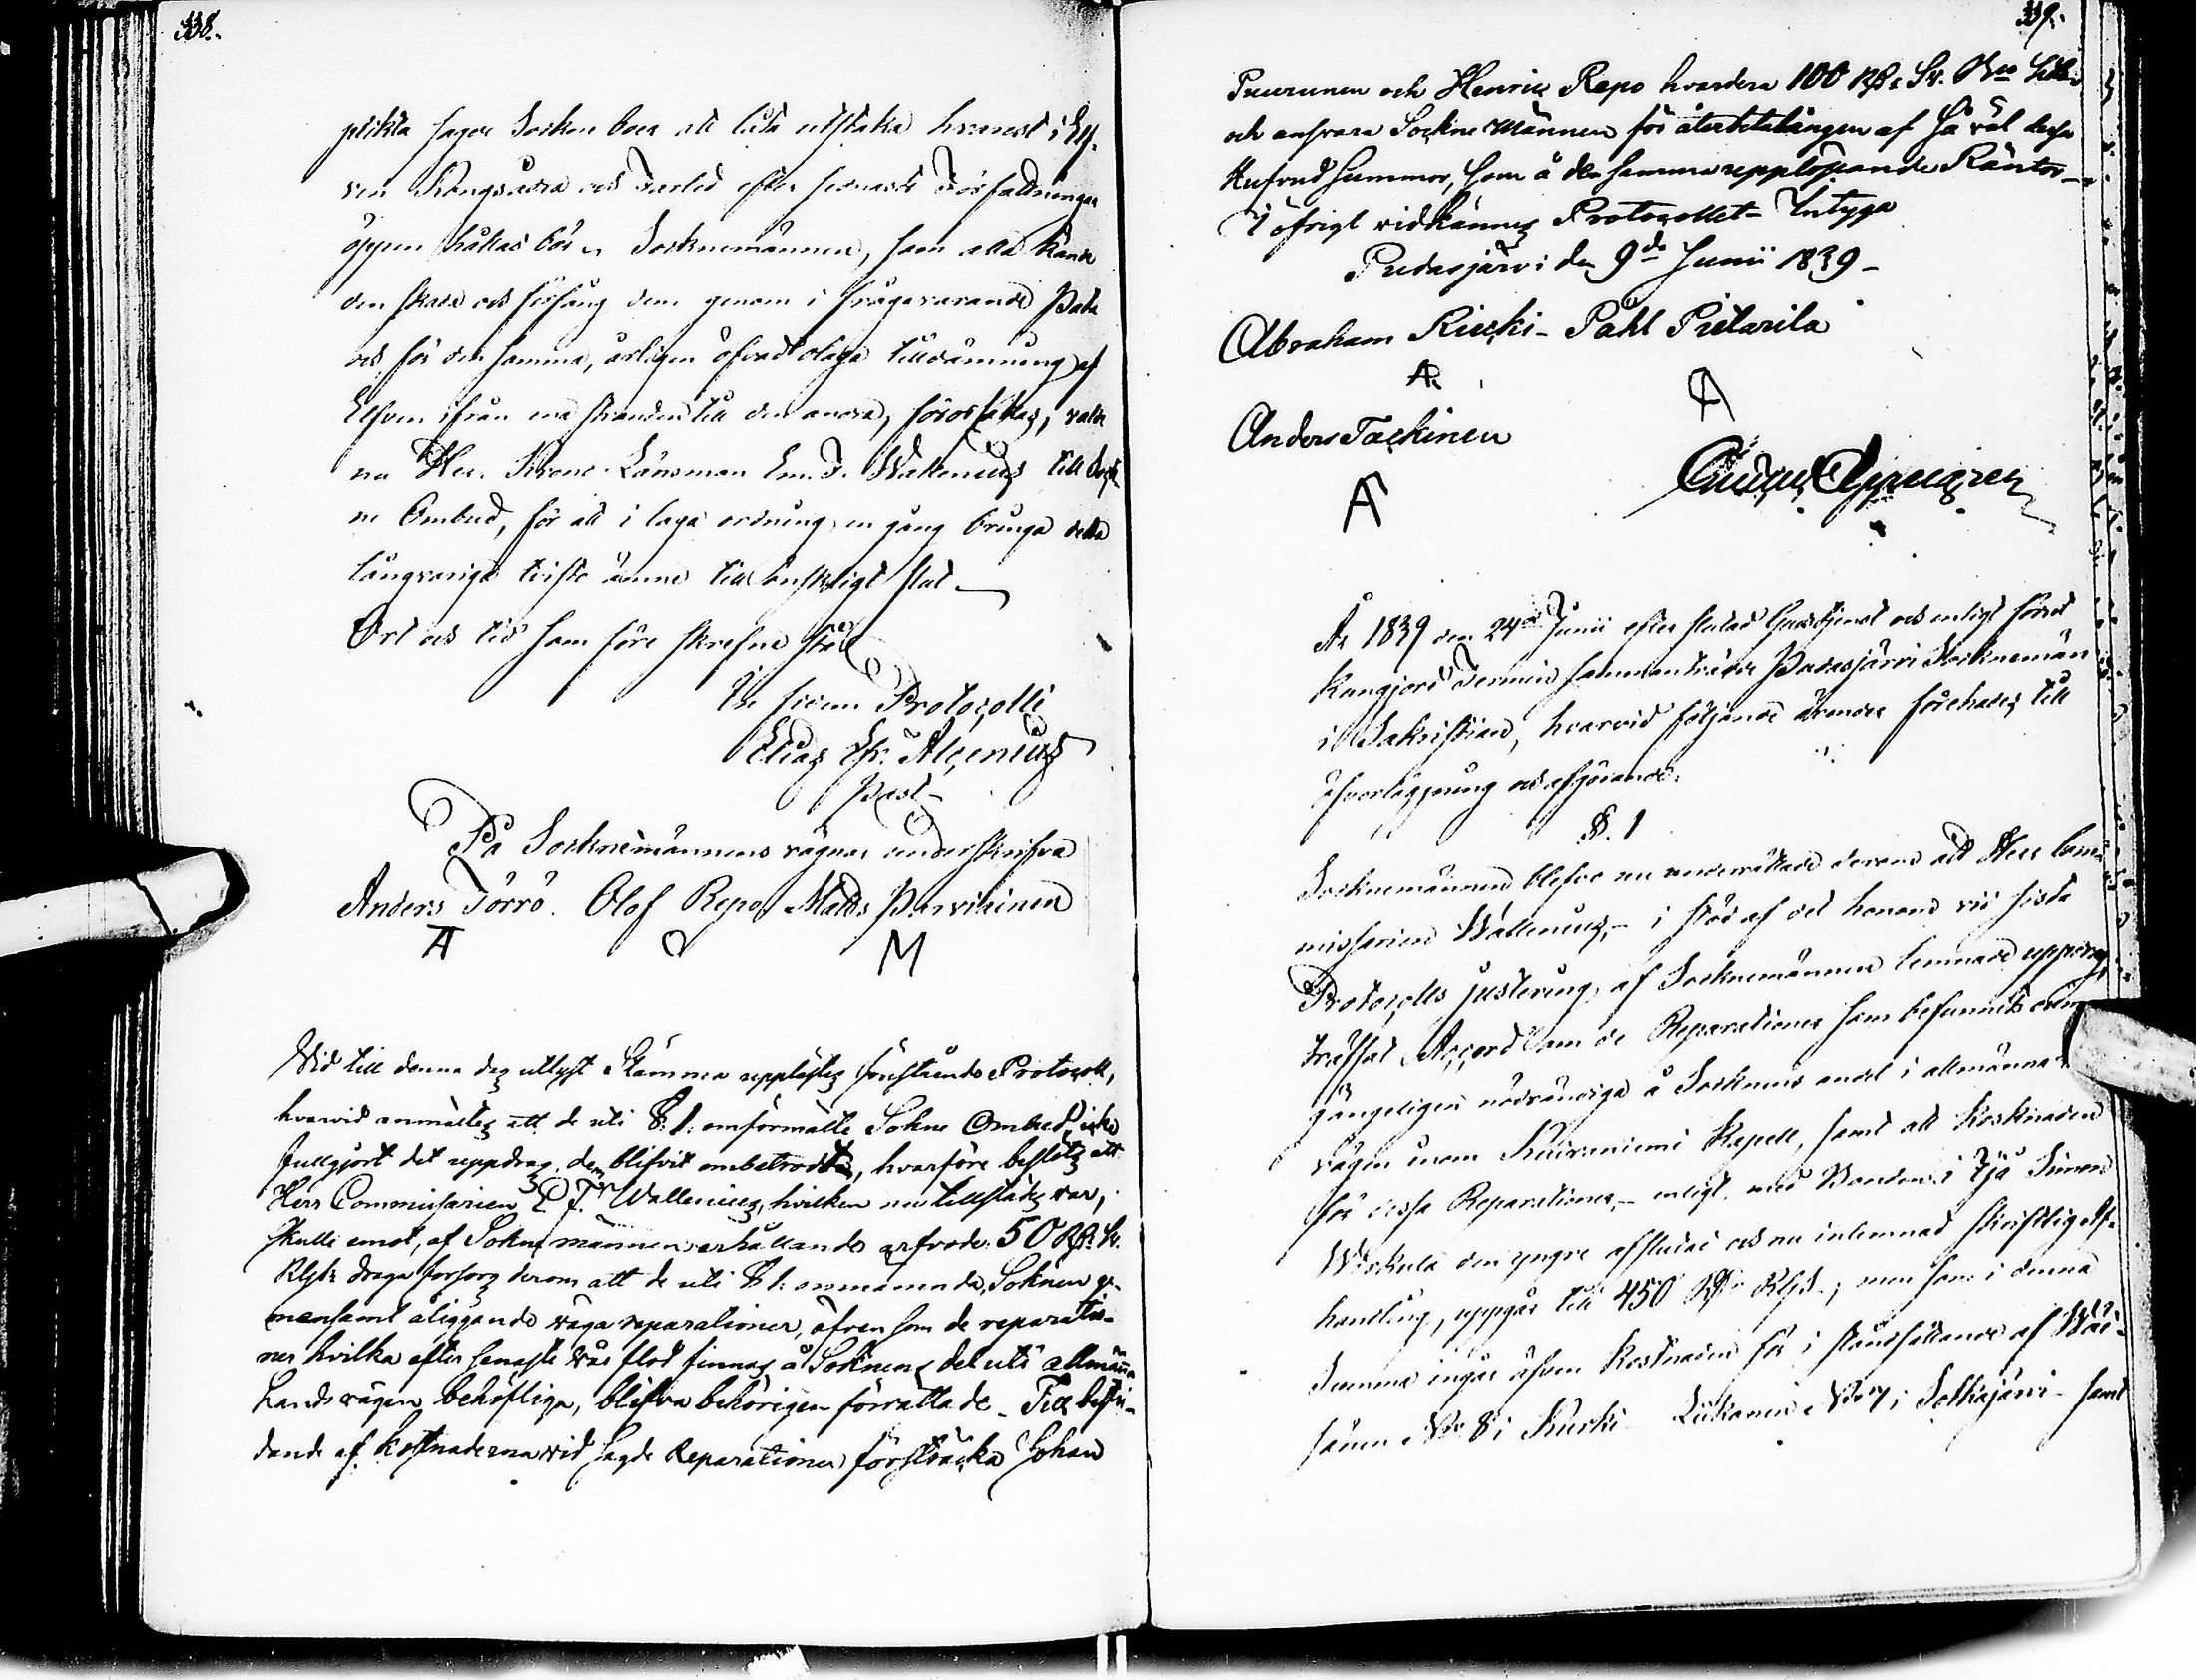 338.
plikta sagde Socken boer att låta utstaka hvarest i Elf-
ven Kongsådra och Farled efter senaste Författningar
öppen hållas bör. Socknemännen, som alla kände
den skada och förfång dem genom i frågavarande Pata
och för den samma, årligen öfvad olaga tilldämning af
Elfven ifrån ena stranden till den andra, förorsakas, valde
nu Herr Krono Länsman Em. F. Wallenius till Sock-
ne Ombud, för att i laga ordning en gång bringa detta
långvariga tviste ämne till önskeligt slut.
Ort och tid som före skrefne stå
In fidem Protocolli
Elias Ef. Alcenius
Past.
På Socknemännens vägnar underskrifva
Anders Törrö. Olof Repo, Matts Parviainen
A O M
Vid till denna dag utlyst Stämma upplästes förestående Protocoll,
hvarvid anmältes att de uti §. 1. omförmälte Sokne Ombud, icke
fullgjort det uppdrag dem blifvit ombetrodt, hvarföre beslöts att
Herr Commissarien E. F. Wallenius, hvilken nu tillstädes var,
skulle emot, af Sokne männen erhållande arfvode 50 Rb. Sv.
Rgls draga forsorg derom att de uti § 1. omnämnda, Soknen ge-
mensamt åliggande väga reparationer, äfven som de reparatio-
ner hvilka efter senaste vår flod finnas å Soknens del uti allmänna
Landsvägen behöfliga, blifva behörigen förrättade. Till bestri-
dande af kostnaderna vid sagde Reparationer försträcka Johan
339.
Puurunen och Henric Repo hvardera 100 Rb. Sv. Bco Sedlar
och ansvara Sockne Männen för återbetalningen af så väl dessa
Hufvud summor, som å den samma upplöpande Räntor.
I öfrigt vidkännes Protocollet. Intyga
Pudasjärvi den 9de Junii 1839.
Abraham Riekki. Påhl Pietarila
A A
Anders Tackinen
A
Gustaf Appelgren
År 1839 den 24de Junii efter slutad Gudstjenst och enligt förut
kungjord Termin sammanträdde Pudasjärvi Socknemän
i Sakristian, hvarvid följande ärender förehades till
öfverläggning och afgörande.
§. 1
Socknemännen blefvo nu underrättade derom att Herr Com-
missarien Wallenius, i stöd af det honom vid sista
Protocolls justering af Socknemännen lemnade uppdrag,
träffat Accord om de Reparationer som befunnits oum-
gängeligen nödvändiga å Socknens andel i allmänna
vägen inom Kuivaniemi Kapell, samt att kostnaden
för dessa Reparationer, enligt med Bonden i Ijå Simon
Wirkula den yngre afslutad och nu inlemnad skriftlig Af-
handling, uppgår till 450 Rb. Rgls; men som i denna
Summa ingår äfven kostnaden för i ståndsättande af
No 8 i Kurki Liikanen No 7 i Sotkajärvi samt